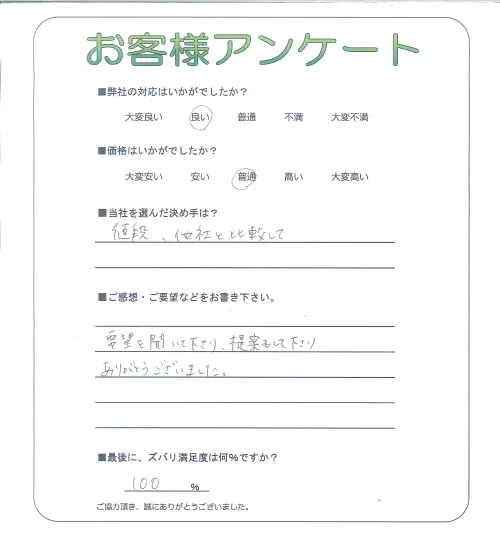 お客様アンケート
■弊社の対応はいかがでしたか?
大変良い 良い 普通 不満 大変不満
■価格はいかがでしたか?
大変安い 安い 普通 高い 大変高い
■当社を選んだ決め手は?
値段、他社と比較して
■ご感想・ご要望などをお書き下さい。
要望を聞いて下さり、提案もして下さり
ありがとうございました。
■最後に、ズバリ満足度は何%ですか?
100 %
ご協力頂き、誠にありがとうございました。